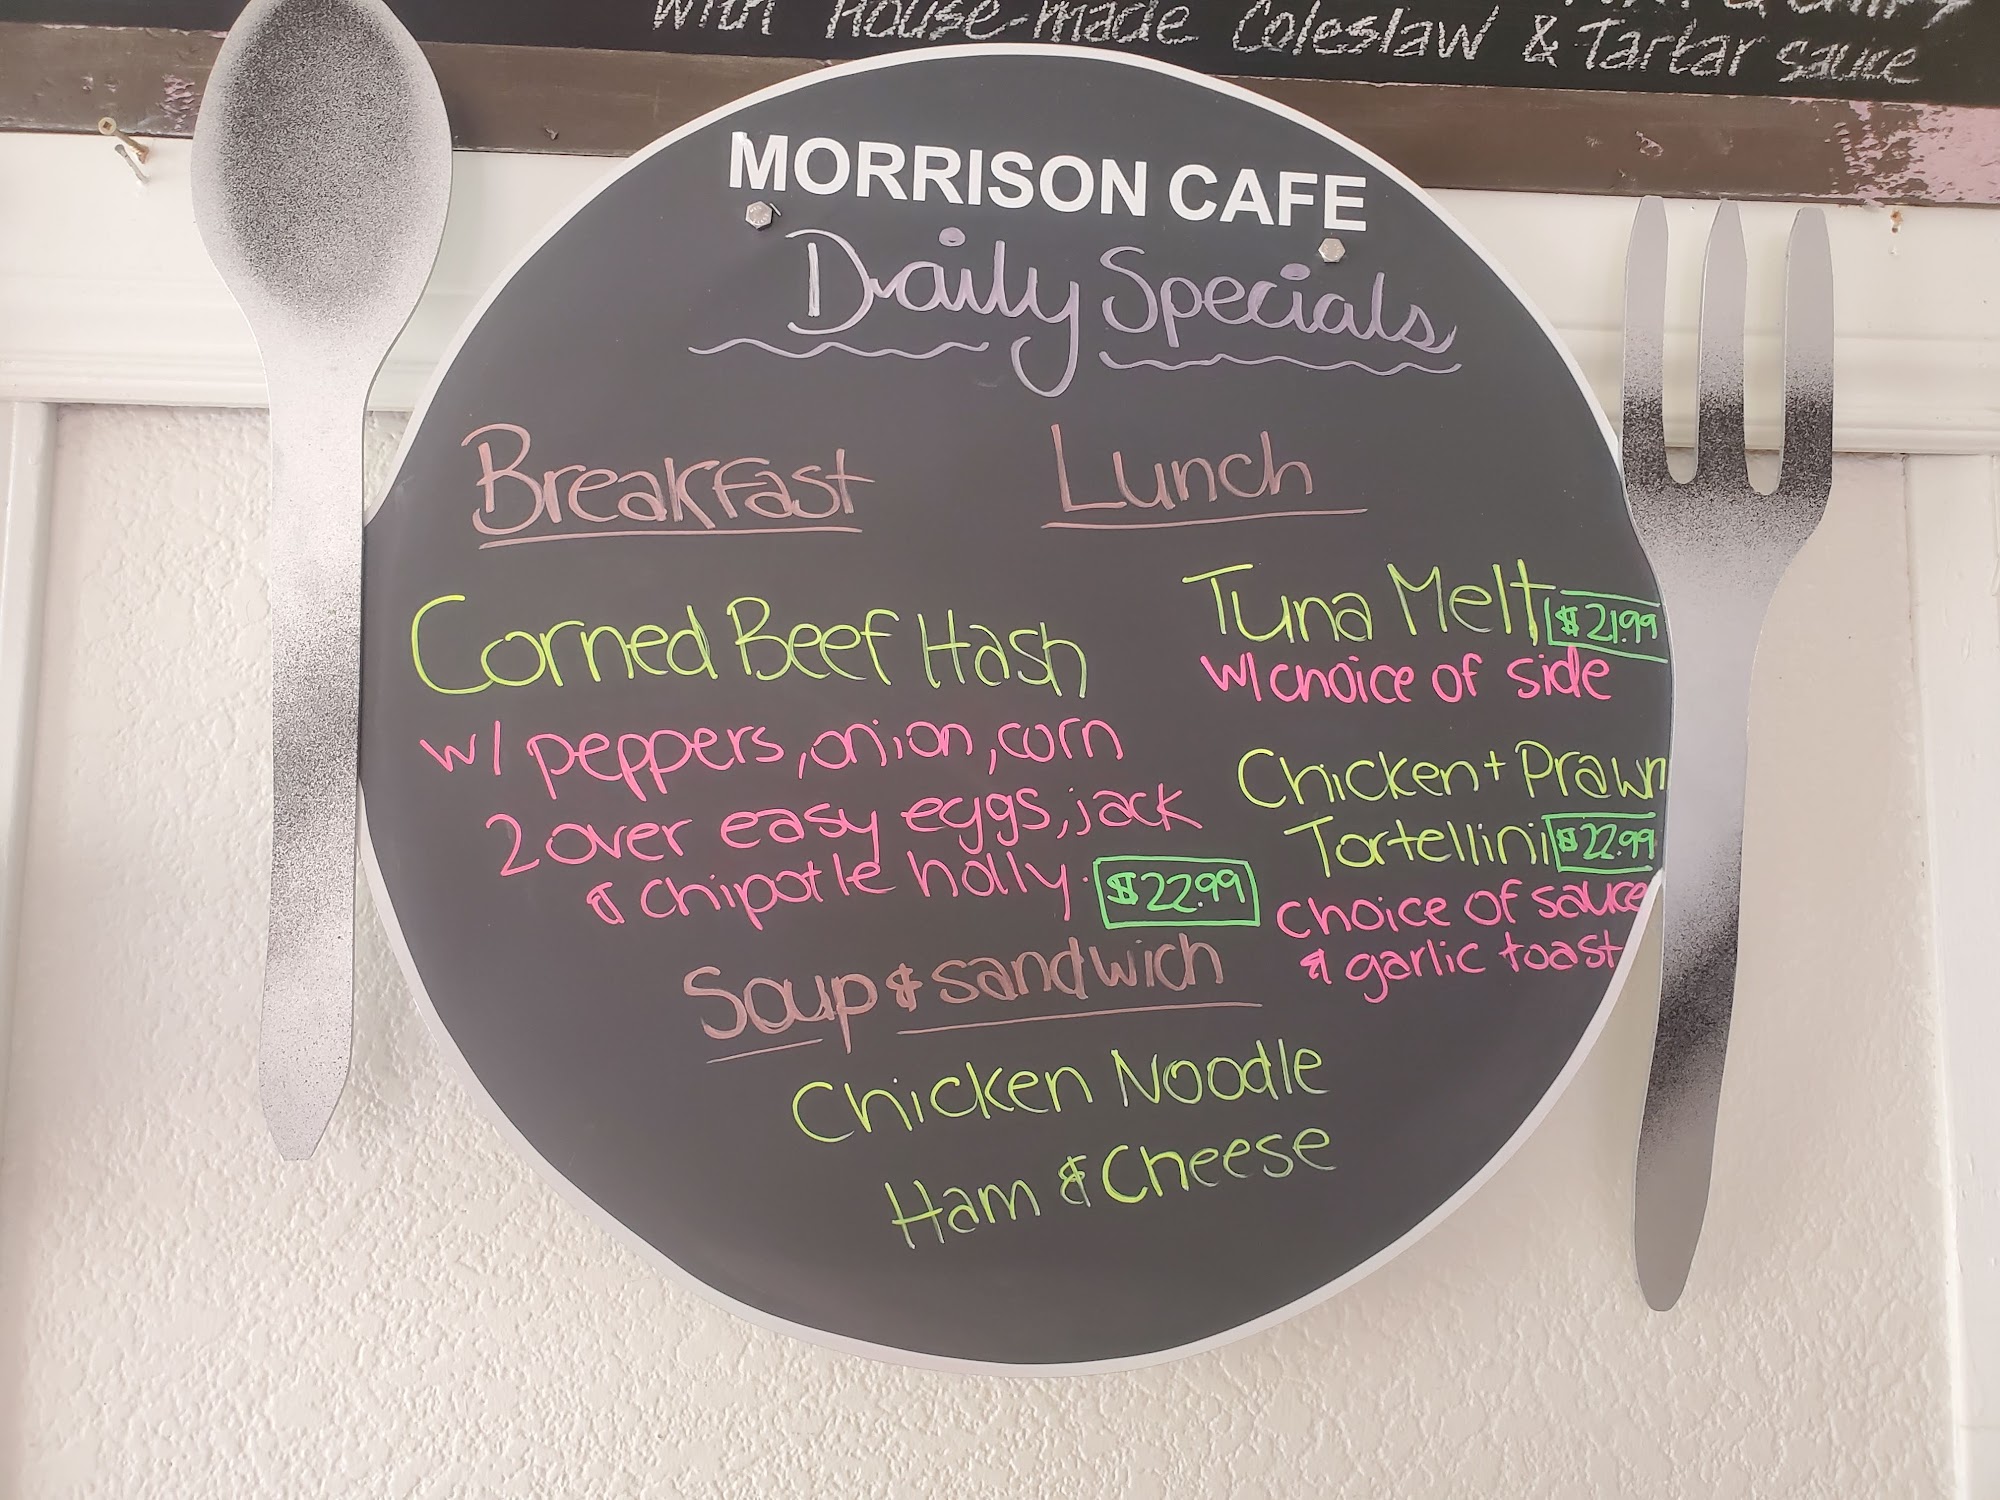 with House-made Coleslaw & Tartar sauce
MORRISON CAFE
Daily Specials
Breakfast
Corned Beef Hash
w/ peppers, onion, corn
2 over easy eggs, jack
& chipotle holly. $22.99
Lunch
Tuna Melt $21.99
w/ choice of side
Chicken + Prawn
Tortellini $22.99
choice of sauce
& garlic toast
Soup & sandwich
Chicken Noodle
Ham & Cheese